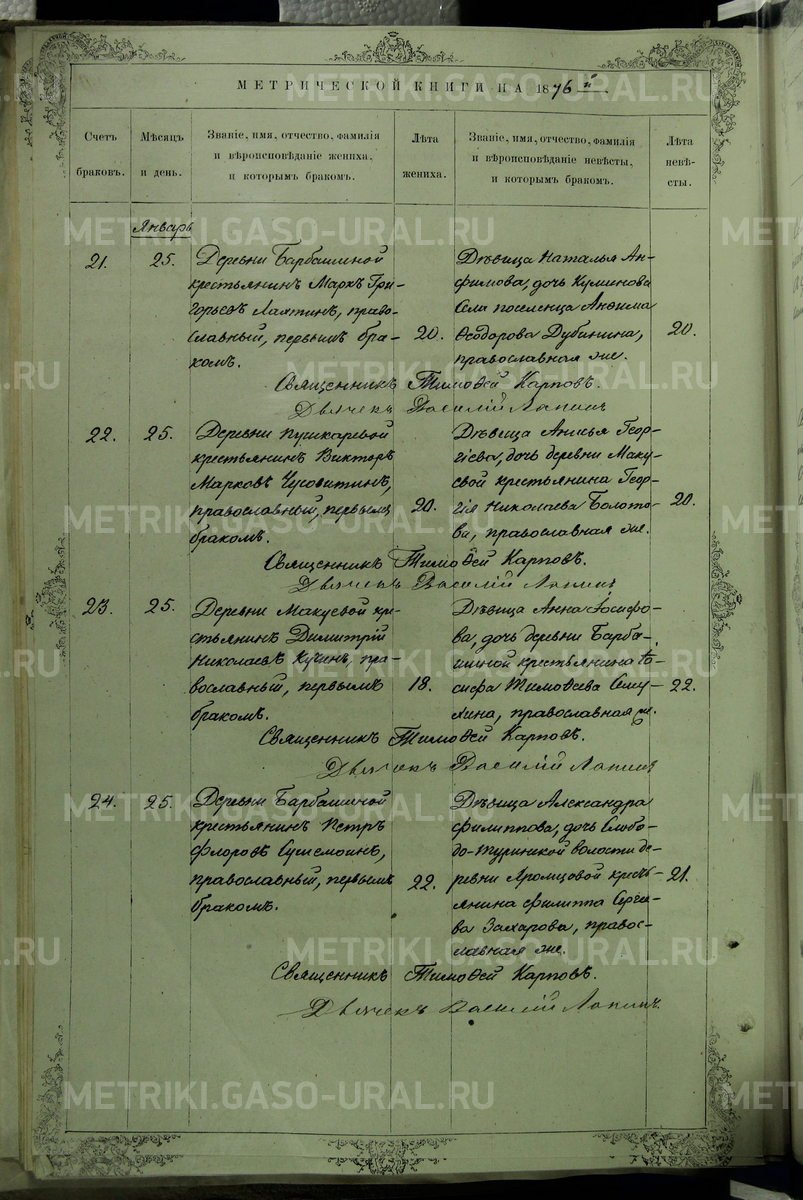 МЕТРИЧЕСКОЙ КНИГИ НА 1876й
Счетъ браковъ.
Мѣсяцъ и день.
Званіе, имя, отчество, фамилія и вѣроисповѣданіе жениха, и которымъ бракомъ.
Лѣта жениха.
Званіе, имя, отчество, фамилія и вѣроисповѣданіе невѣсты, и которымъ бракомъ.
Лѣта невѣсты.
Январь
21.
25.
Деревни Барбашиной
крестьянинъ Маркъ Гри-
горьевъ Лаптинъ, право-
славный, первымъ бра-
комъ.
20.
Дѣвица Наталья Ан-
фимова, дочь Куминова
Села поселенца Анѳима
Ѳеодорова Дубинина,
православная же.
20.
Священникъ Тимоѳей Карповъ.
Дьячекъ Василій Лапинъ
22.
25.
Деревни Пушкаревой
крестьянинъ Викторъ
Марковъ Чусовитинъ,
православный, первымъ
бракомъ.
20.
Дѣвица Анисья Геор-
гіева, дочь деревни Маку-
евой крестьянина Геор-
гія Николаева Болото-
ва, православная же.
20.
Священникъ Тимоѳей Карповъ.
Дьячекъ Василій Лапинъ
23.
25.
Деревни Макуевой кре-
стьянинъ Димитрій
Николаевъ Кучинъ, пра-
вославный, первымъ
бракомъ.
18.
Дѣвица Анна Іосифо-
ва, дочь деревни Барба-
шиной крестьянина Іо-
сифа Тимоѳеева
православная же.
22.
Священникъ Тимоѳей Карповъ.
Дьячекъ Василій Лапинъ
24.
25.
Деревни Барбашиной
крестьянинъ Петръ
Флоровъ
православный, первымъ
бракомъ.
22.
Дѣвица Александра
Филиппова, дочь Слобо-
до-Туринской волости де-
ревни Яромцовой кресть-
янина Филиппа Серге-
ва Захарова, правос-
лавная же.
21.
Священникъ Тимоѳей Карповъ.
Дьячекъ Василій Лапинъ
METRIKI.GASO-URAL.RU